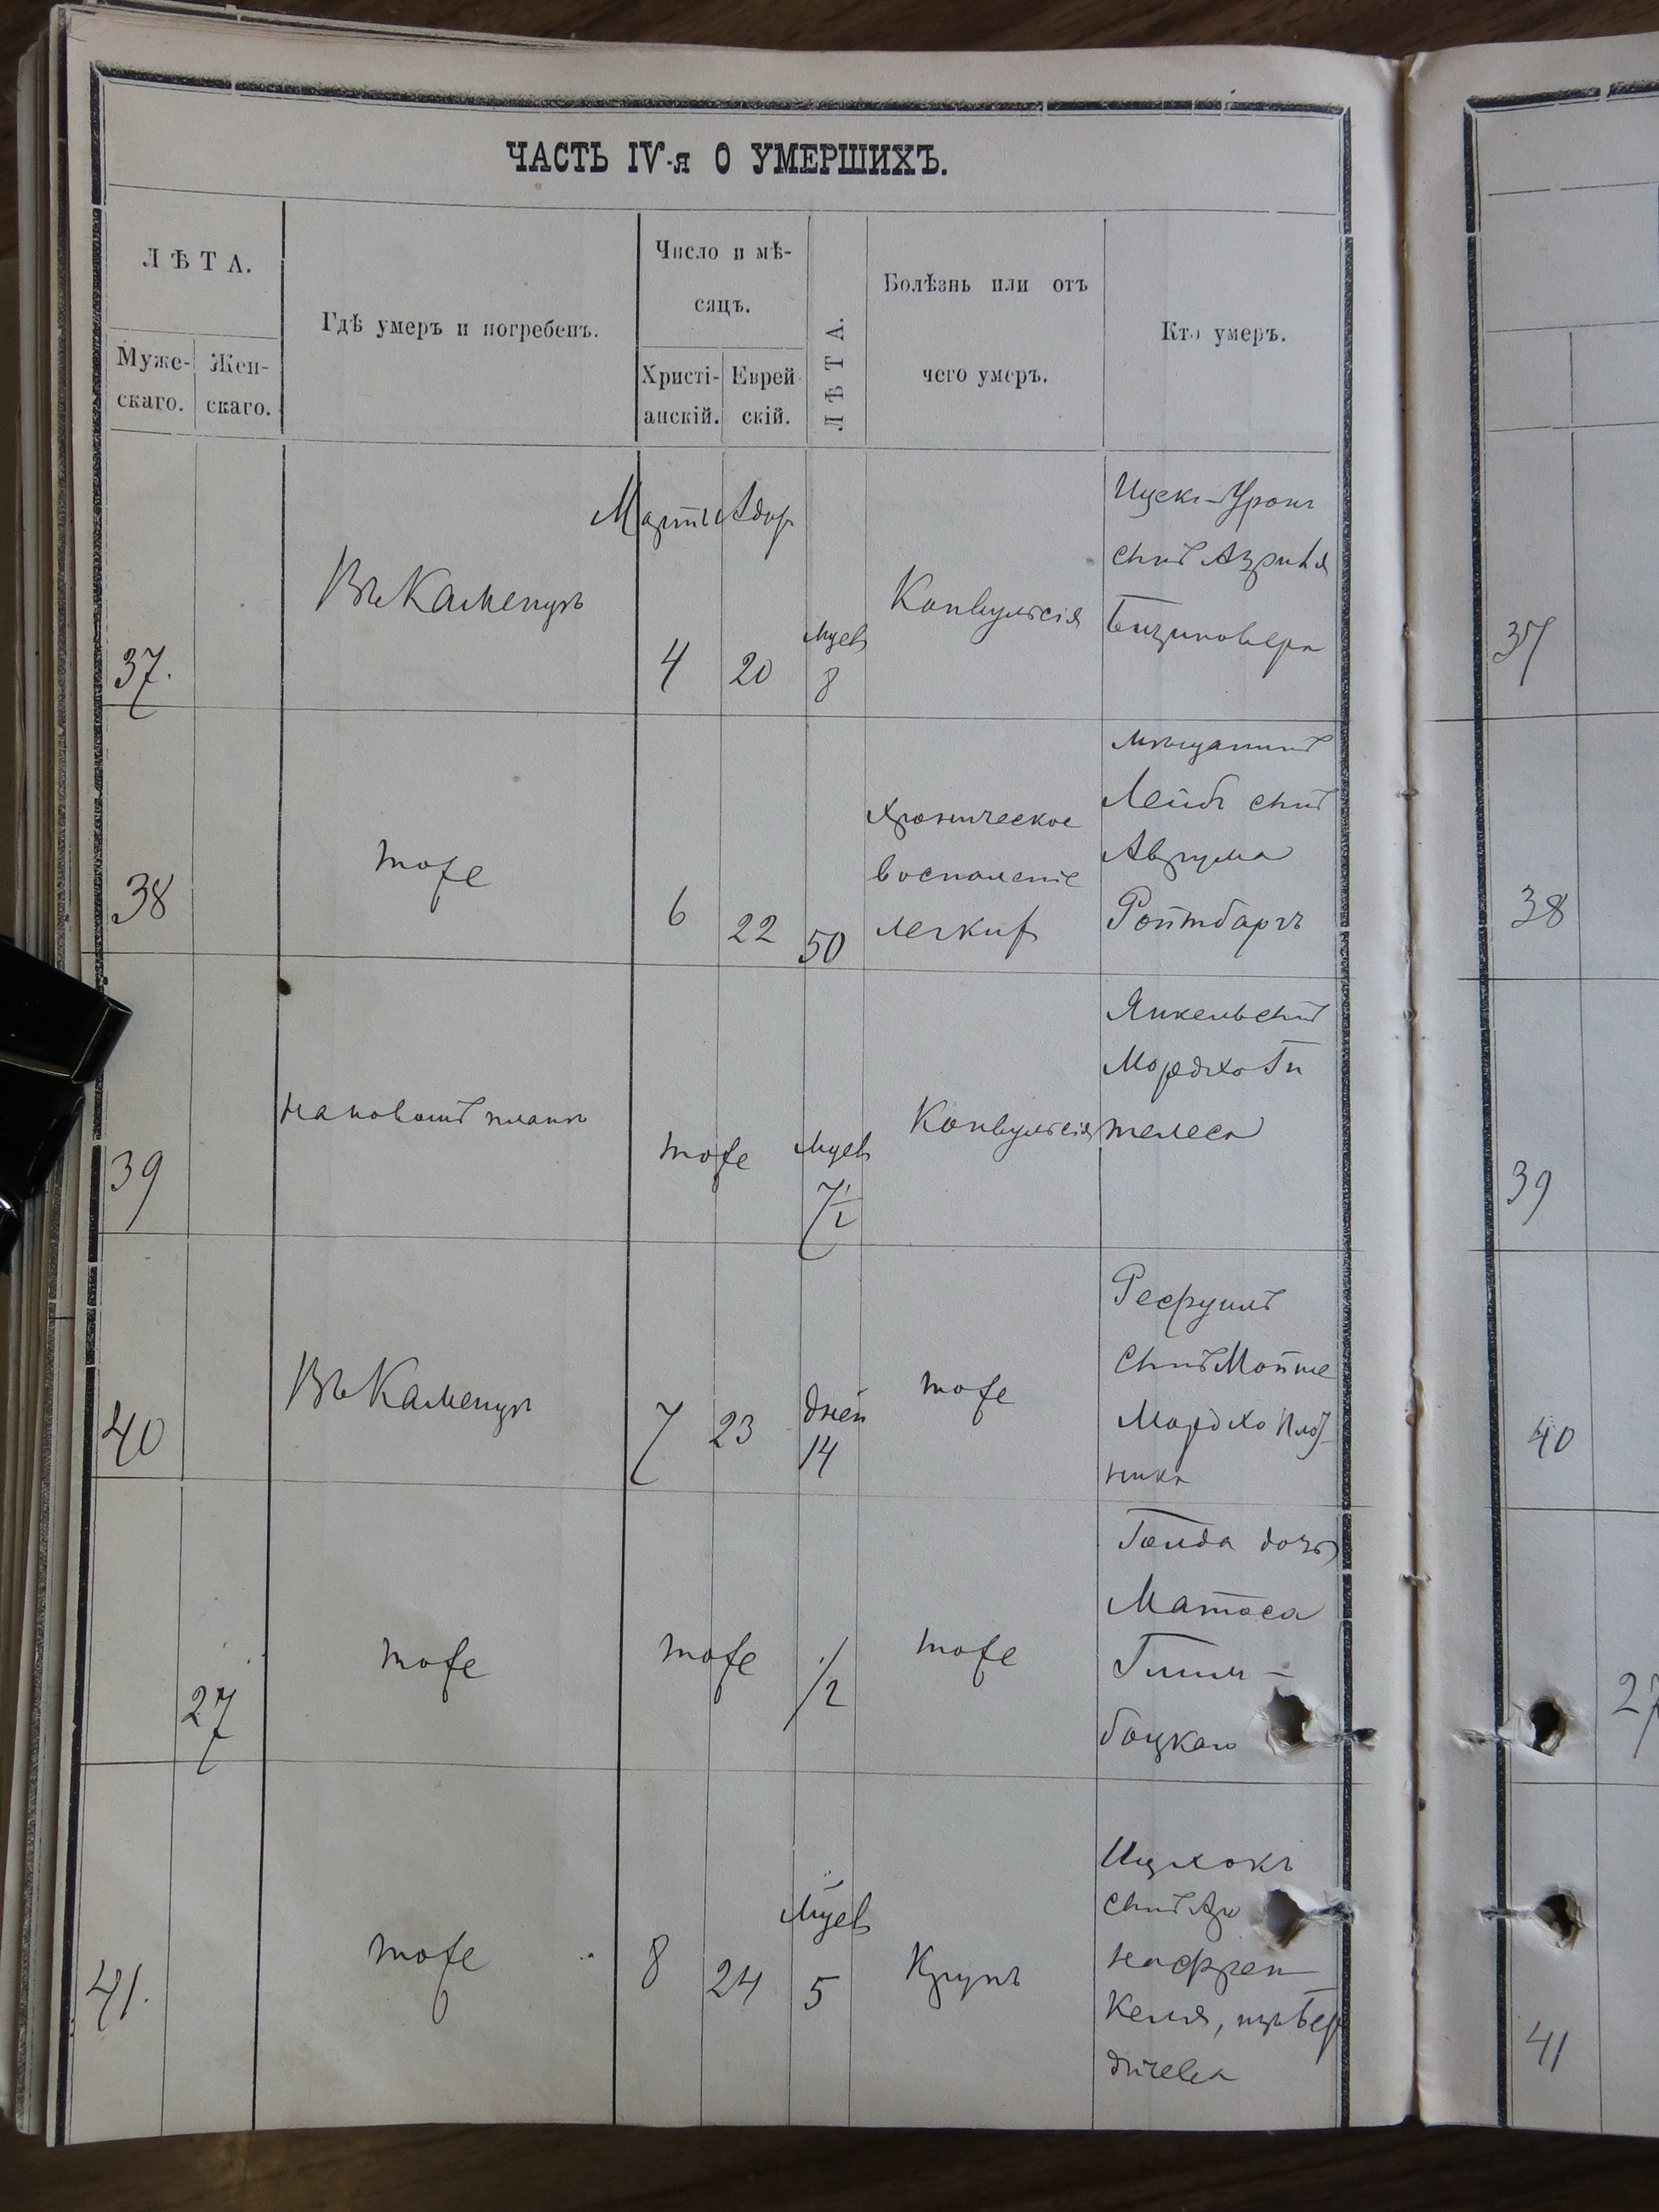 ЧАСТЬ IV-я О УМЕРШИХЪ.
ЛѢТА.
Муже-
скаго.
Жен-
скаго.
Гдѣ умеръ и погребенъ.
Число и мѣ-
сяцъ.
Христі-
анскій.
Еврей
скій.
ЛѢТА.
Болѣзнь или отъ
чего умеръ.
Кто умеръ.
37.
Въ Каменцѣ
Мартъ Адар
4
20
Мцев
8
Конвульсія
Ицек-
сынъ Азриля
37
38
тоже
6
22
50
Хроническое
воспаленіе
легких
мѣщанинъ
Лейбъ сынъ
Аврума
Ройтбаргъ
38
39
на новомъ планѣ
тоже
Мцев
7 1/2
Конвульсія
Янкель сынъ
Мордхо Ги
телеса
39
40
Въ Каменцѣ
7
23
дней
14
тоже
Рефуилъ
сынъ Мойше
Мордхо Плот
ника
40
27
тоже
тоже
1/2
тоже
Голда дочь
Матоса
боцкаго
27
41.
тоже
8
24
Мцев
5
Крупъ
Ицхокъ
сынъ
келя, изъ Бер
дичева
41